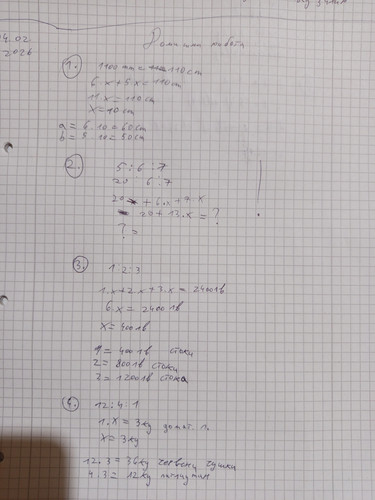 04.02.
2026
Домашна работа
1.
1100 mm = 110 cm
6.x+5.x=110cm
11x=110cm
x=10cm
a = 6.10=60cm
b = 5.10=50cm
2.
5:6:7
20 6:7
20 + 6.x+7.x
20+13.x=?
?=
3.
1:2:3
1.x+2.x+3.x = 2400лв
6.x = 2400лв
x=400лв
1=400лв стока
2=800лв стока
3=1200лв стока
4.
12:4:1
1.x=3kg домат. п.
x=3kg
12.3=36kg червени чушки
4.3=12kg патладжан